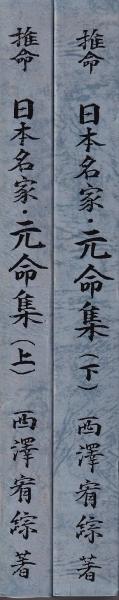 推命 日本名家・元命集(上) 西澤宥綜 著
推命 日本名家・元命集(下) 西澤宥綜 著